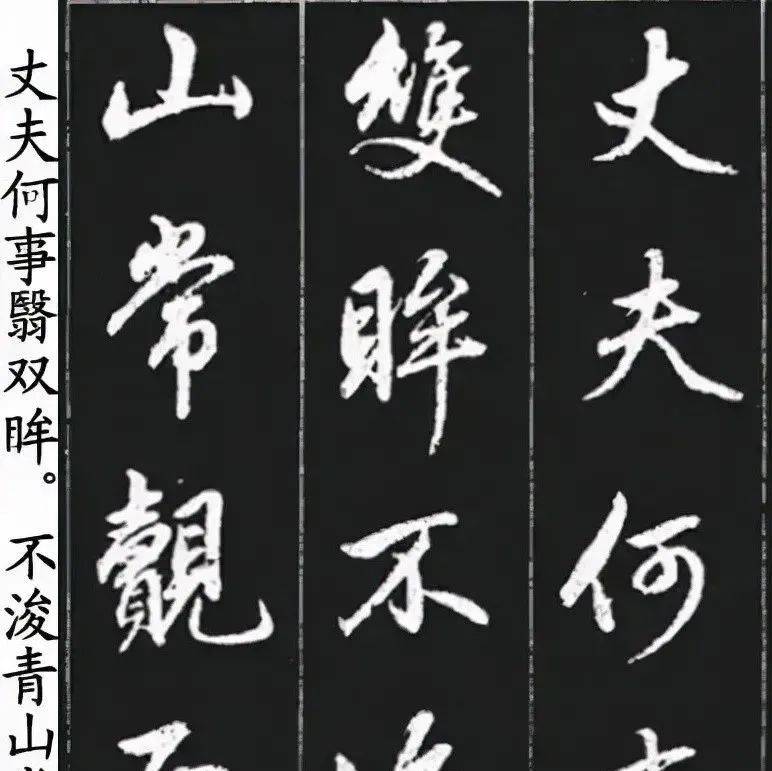 丈夫何
雙眸不
山常覿
丈夫何事翳双眸。不浚青山